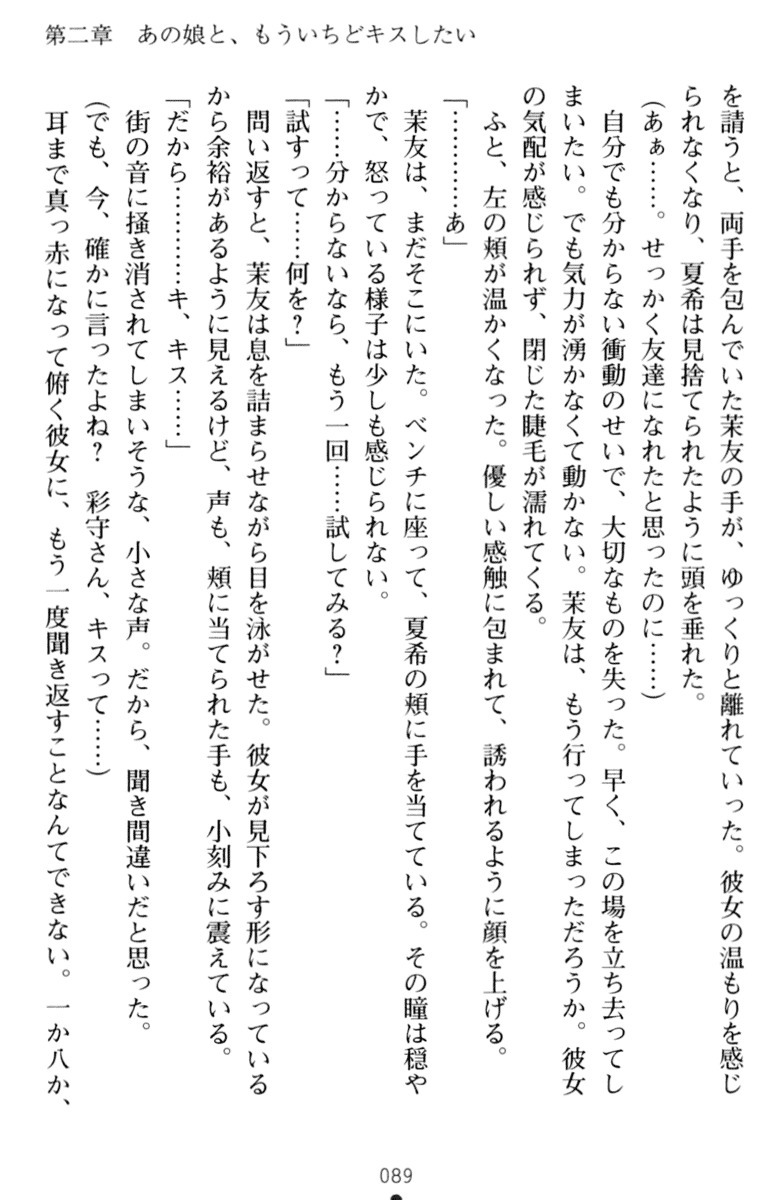 第二章　あの娘と、もういちどキスしたい
を請うと、両手を包んでいた茉友の手が、ゆっくりと離れていった。彼女の温もりを感じ
られなくなり、夏希は見捨てられたように頭を垂れた。
（あぁ……。せっかく友達になれたと思ったのに……）
自分でも分からない衝動のせいで、大切なものを失った。早く、この場を立ち去ってし
まいたい。でも気力が湧かなくて動かない。茉友は、もう行ってしまっただろうか。彼女
の気配が感じられず、閉じた睫毛が濡れてくる。
ふと、左の頬が温かくなった。優しい感触に包まれて、誘われるように顔を上げる。
「…………あ」
茉友は、まだそこにいた。ベンチに座って、夏希の頬に手を当てている。その瞳は穏や
かで、怒っている様子は少しも感じられない。
「……分からないなら、もう一回……試してみる？」
「試すって……何を？」
問い返すと、茉友は息を詰まらせながら目を泳がせた。彼女が見下ろす形になっている
から余裕があるように見えるけど、声も、頬に当てられた手も、小刻みに震えている。
「だから…………キ、キス……」
街の音に掻き消されてしまいそうな、小さな声。だから、聞き間違いだと思った。
（でも、今、確かに言ったよね？　彩守さん、キスって……）
耳まで真っ赤になって俯く彼女に、もう一度聞き返すことなんてできない。一か八か、
089